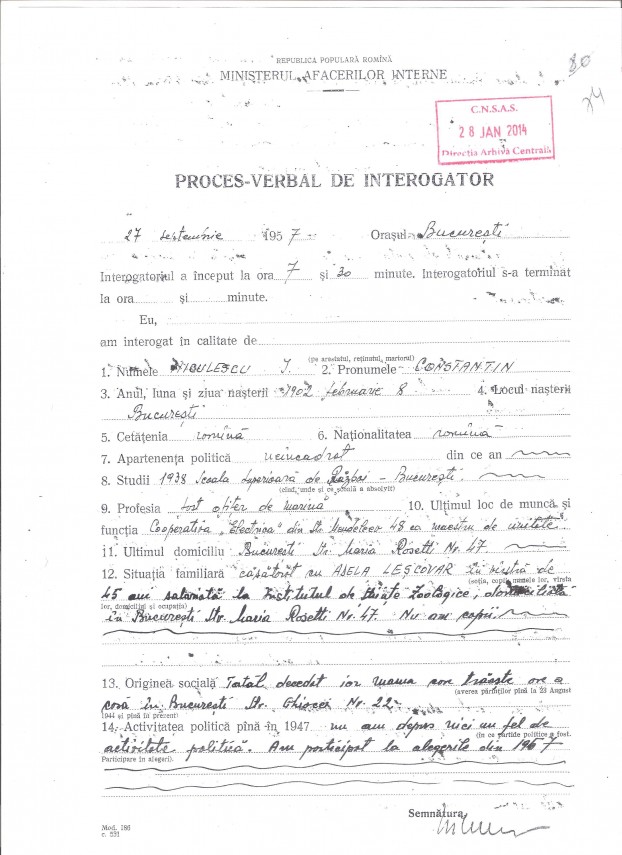 80
REPUBLICA POPULARĂ ROMÎNĂ
MINISTERUL AFACERILOR INTERNE
C.N.S.A.S.
28 JAN 2014
Direcția Arhivă Centrală
PROCES-VERBAL DE INTEROGATOR
27 septembrie 1957 Orașul București
Interogatoriul a început la ora 7 și 30 minute. Interogatoriul s-a terminat
la ora și minute.
Eu,
am interogat în calitate de
(pe arestatul, reținutul, martorul)
1. Numele NICULESCU I. 2. Pronumele CONSTANTIN
3. Anul, luna și ziua nașterii 1902 februarie 8 4. Locul nașterii
București
5. Cetățenia romînă 6. Naționalitatea romînă
7. Apartenența politică neîncadrat din ce an
8. Studii 1938 Școala Superioară de Război - București.
(cînd, unde și ce școală a absolvit)
9. Profesia fost ofițer de marină 10. Ultimul loc de muncă și
funcția Cooperativa "Electrica" din Str. Mendeleev 48 ca maestru de unitate
11. Ultimul domiciliu București Str. Maria Rosetti Nr. 47
12. Situația familiară căsătorit cu ADELA LESCOVAR în vîrstă de
(soția, copii, numele lor, vîrsta
45 ani salariată la Institutul de Științe Zoologice, domiciliată
lor, domiciliul și ocupația)
în București Str. Maria Rosetti Nr. 47. Nu am copii.
13. Originea socială Tatăl decedat iar mama care trăiește are o
(averea părinților pînă la 23 August
casă în București Str. Ghiocei Nr. 22.
1944 și pînă în prezent)
14. Activitatea politică pînă în 1947 nu am depus nici un fel de
(în ce partide politice a fost.
activitate politică. Am participat la alegerile din
Participare în alegeri).
Semnătura,
Mod. 186
c. 531